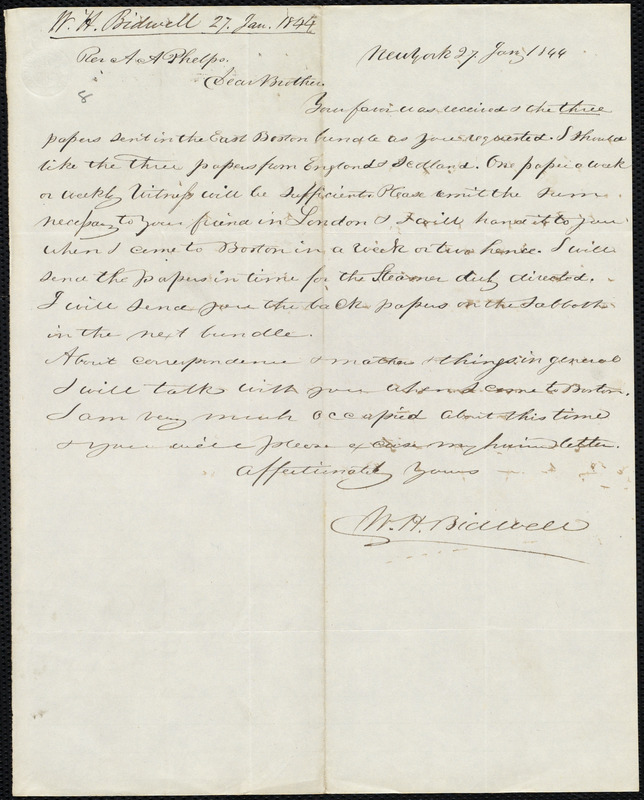 W. H. Bidwell 27. Jan. 1844
New York 27 Jany 1844
Rev A A Phelps.
Dear Brother.
8
Your favor was received & the three
papers sent in the East Boston bundle as you requested. I should
like the three papers from England & Scotland. One paper a week
or weekly Witness will be sufficient. Please remit the sum
necessary to your friend in London & I will hand it to you
when I come to Boston in a week or two hence. I will
send the papers in time for the Steamer duly directed.
I will send you the back papers on the Sabbath
in the next bundle.
About correspondence & matters & things in general
I will talk with you when I come to Boston.
I am very much occupied about this time
& you will please excuse my hurried letter.
Affectionately Yours
W. H. Bidwell